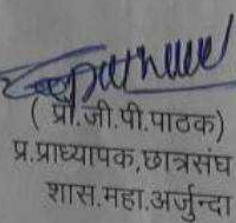 ( प्रो.जी.पी.पाठक)
प्र.प्राध्यापक,छात्रसंघ
शास.महा.अर्जुन्दा